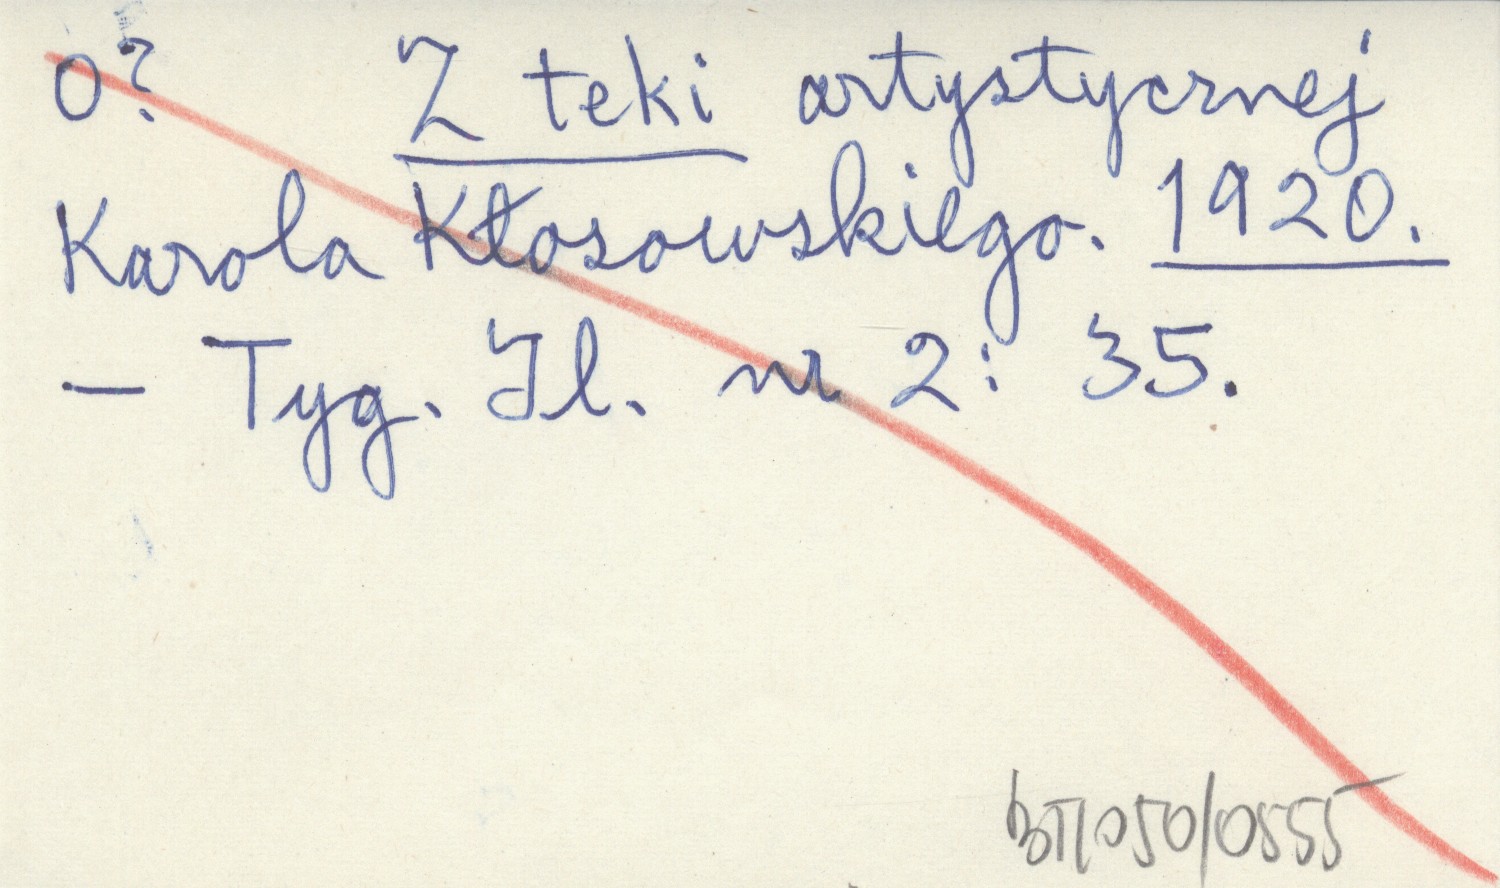 0? Z teki artystycznej
Karola Kłosowskiego. 1920.
— Tyg. Il. nr 2: 35.
BT1050/0555